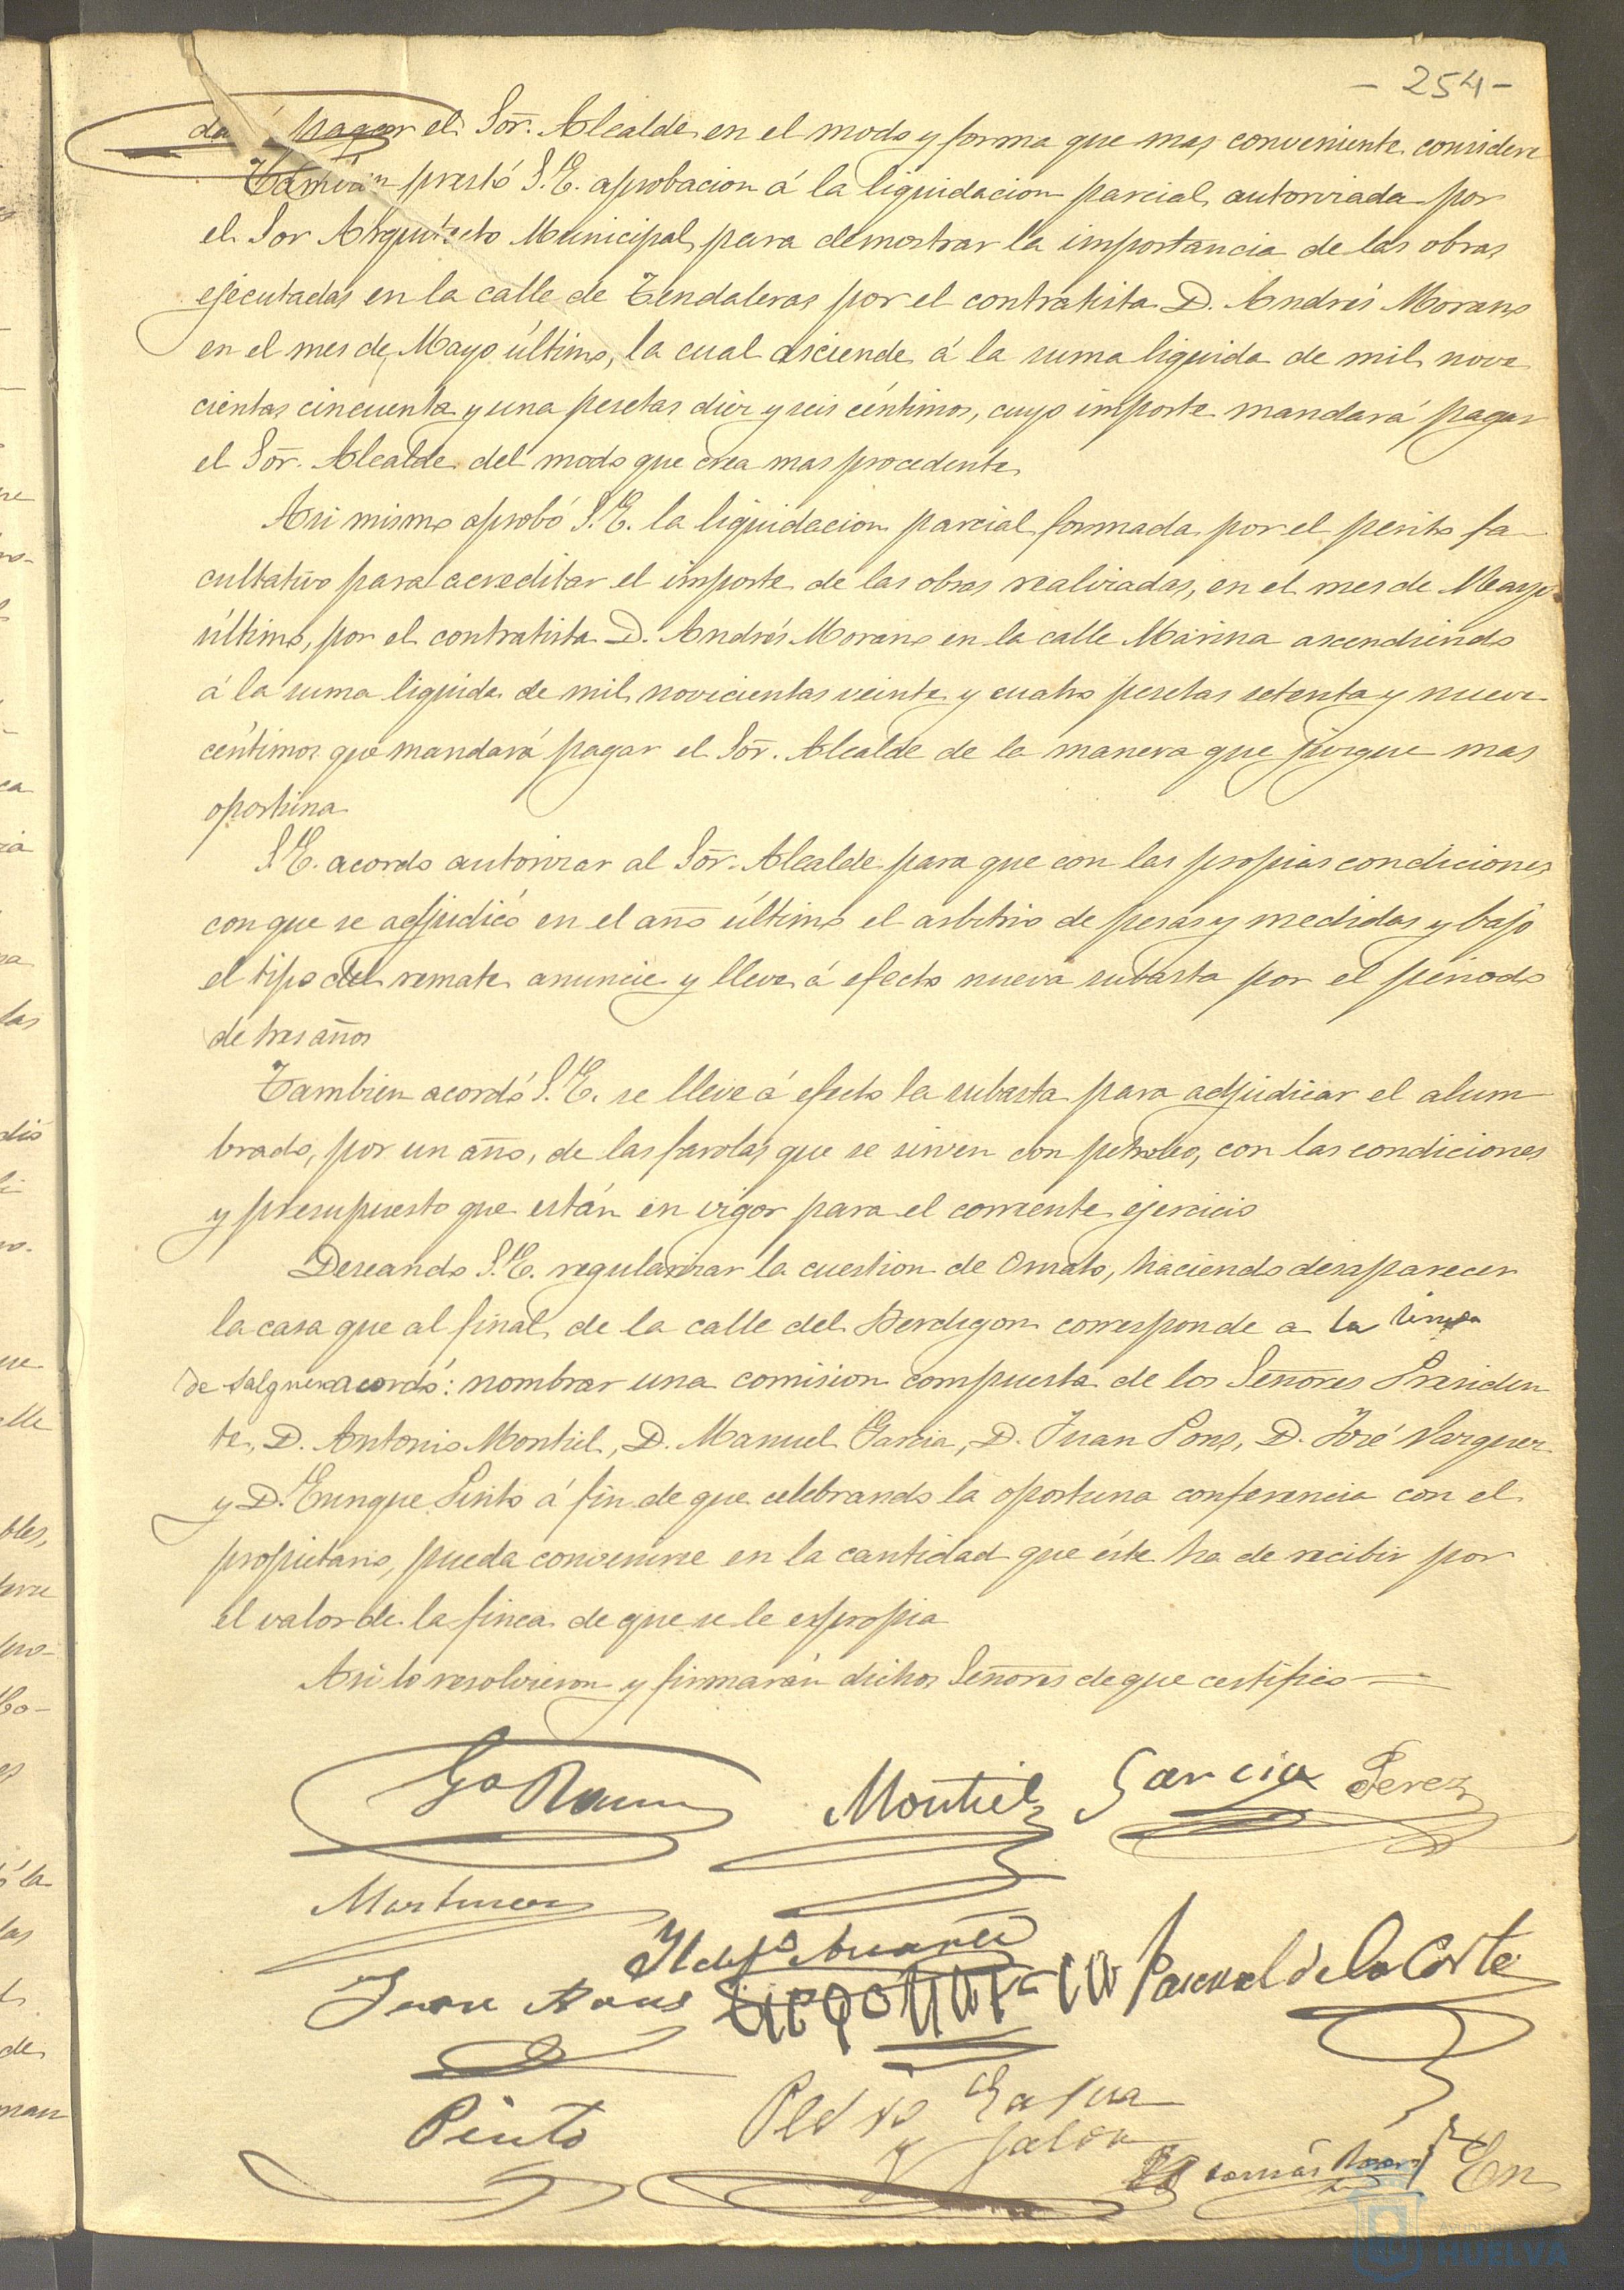 - 254 -
dará pagar el Sor. Alcalde en el modo y forma que mas conveniente considere
Tambien prestó S.E. aprobacion á la liquidacion parcial autorizada por
el Sor Arquitecto Municipal para demostrar la importancia de las obras
ejecutadas en la calle de Tendaleras por el contratista D. Andrés Morano
en el mes de Mayo último, la cual asciende á la suma liquida de mil nove
cientas cincuenta y una pesetas diez y seis céntimos, cuyo importe mandará pagar
el Sor. Alcalde del modo que crea mas procedente
Asi mismo aprobó S.E. la liquidacion parcial formada por el perito fa-
cultativo para acreditar el importe de las obras realizadas, en el mes de Mayo
último, por el contratista D. Andrés Morano en la calle Marina ascendiendo
á la suma liquida de mil novecientas veinte y cuatro pesetas setenta y nueve
céntimos que mandará pagar el Sor. Alcalde de la manera que juzgue mas
oportuna
S.E. acordo autorizar al Sor. Alcalde para que con las propias condiciones
con que se adjudicó en el año último el arbitrio de pesas y medidas y bajo
el tipo del remate anuncie y lleve á efecto nueva subasta por el periodo
de tres años
Tambien acordó S.E. se lleve á efecto la subasta para adjudicar el alum
brado, por un año, de las farolas que se sirven con petroleo, con las condiciones
y presupuesto que están en vigor para el corriente ejercicio
Deseando S.E. regularizar la cuestion de Ornato, haciendo desaparecer
la casa que al final de la calle del Berdigon corresponde a la linea
de Salguera acordó: nombrar una comision compuesta de los Señores Presiden
te, D. Antonio Montiel, D. Manuel Garcia, D. Juan Pons, D. José Vazquez
y D. Enrique Pinto á fin de que celebrando la oportuna conferencia con el
propietario, pueda convenirse en la cantidad que éste ha de recibir por
el valor de la finca de que se le expropia
Asi lo resolvieron y firmarán dichos Señores de que certifico
Montiel Garcia Perez
Martinez
Pascual de la Corte
Juan
Pinto
Pedro
Tomás
En
HUELVA